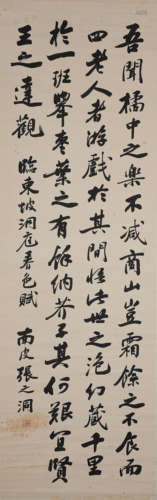 吾聞橘中之樂不減商山豈霜餘之不食而
四老人者游戲於其間悟此世之泡幻藏千里
於一班舉棗葉之有餘納芥子其何艱宜賢
王之達觀 臨東坡洞庭春色賦
南皮張之洞